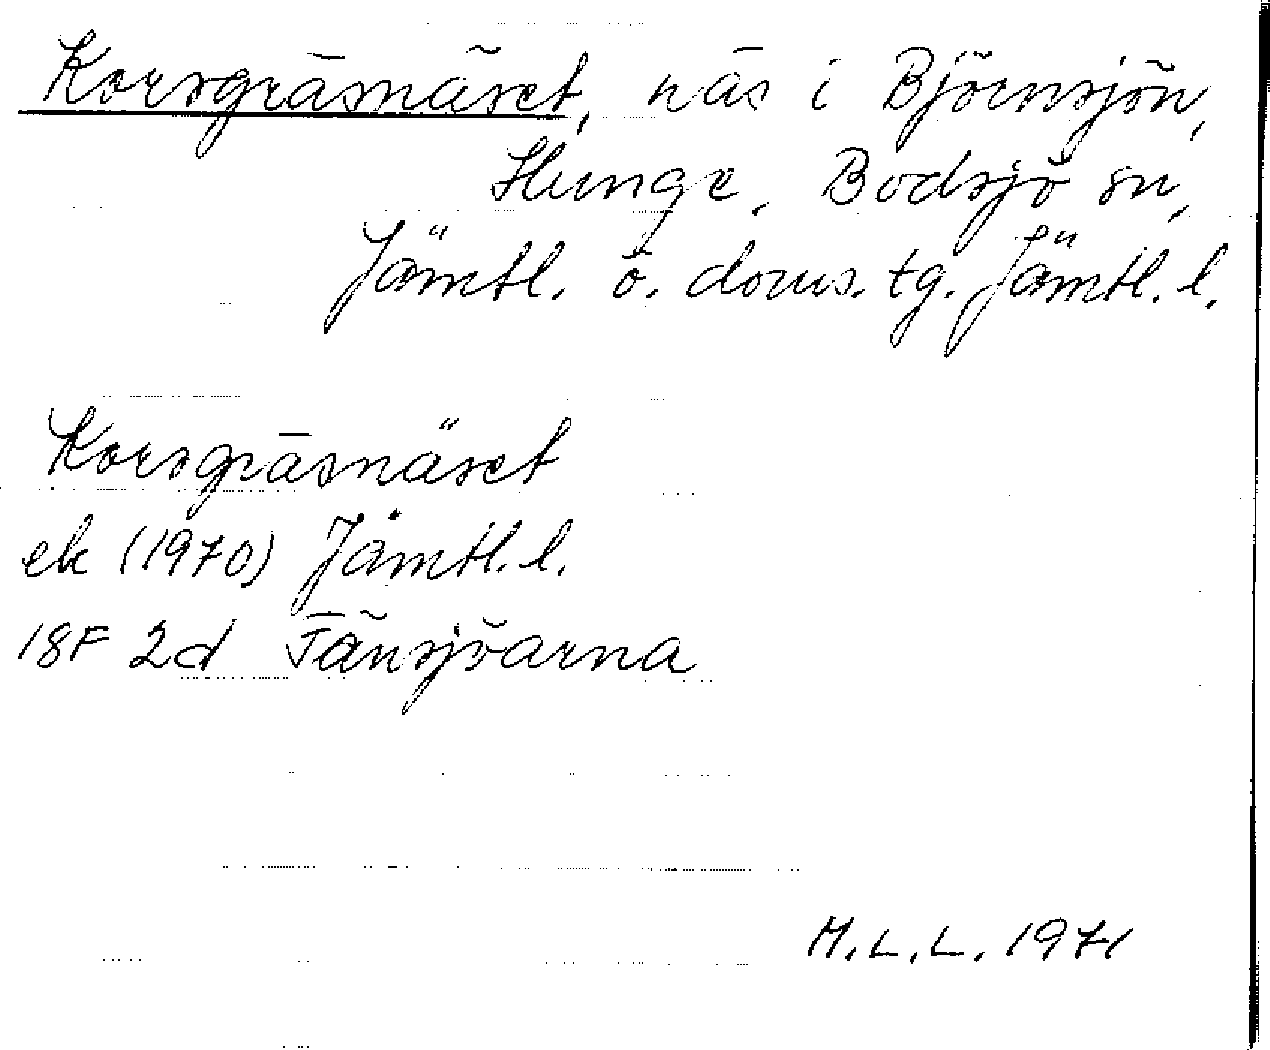 Korsgräsnäset, näs i Björnsjön,
Hunge, Bodsjö sn,
Jämtl. ö. doms. tg. Jämtl. l.
Korsgräsnäset
ek (1970) Jämtl. l.
18F 2d Tänsjöarna
M.L.L. 1971